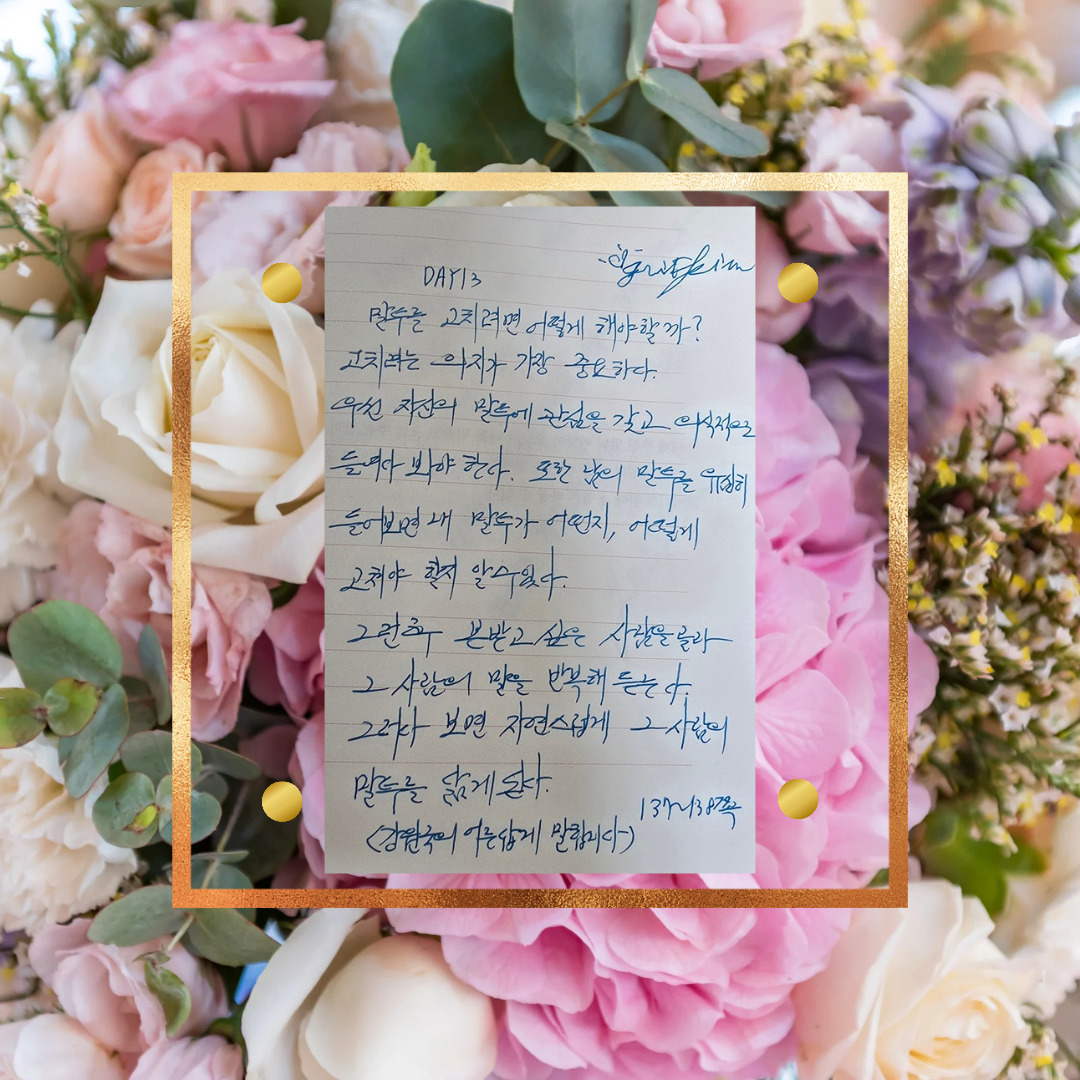 DAY13
말투를 고치려면 어떻게 해야할까?
고치려는 의지가 가장 중요하다.
우선 자신의 말투에 관심을 갖고 의식적으로
들여다 봐야 한다. 또한 남의 말투를 유심히
들어보면 내 말투가 어떤지, 어떻게
고쳐야 할지 알수있다.
그런후 본받고 싶은 사람을 골라
그 사람의 말을 반복해 듣는다.
그러다 보면 자연스럽게 그 사람의
말투를 닮게 된다.
137~138쪽
<강원국의 어른답게 말합니다>